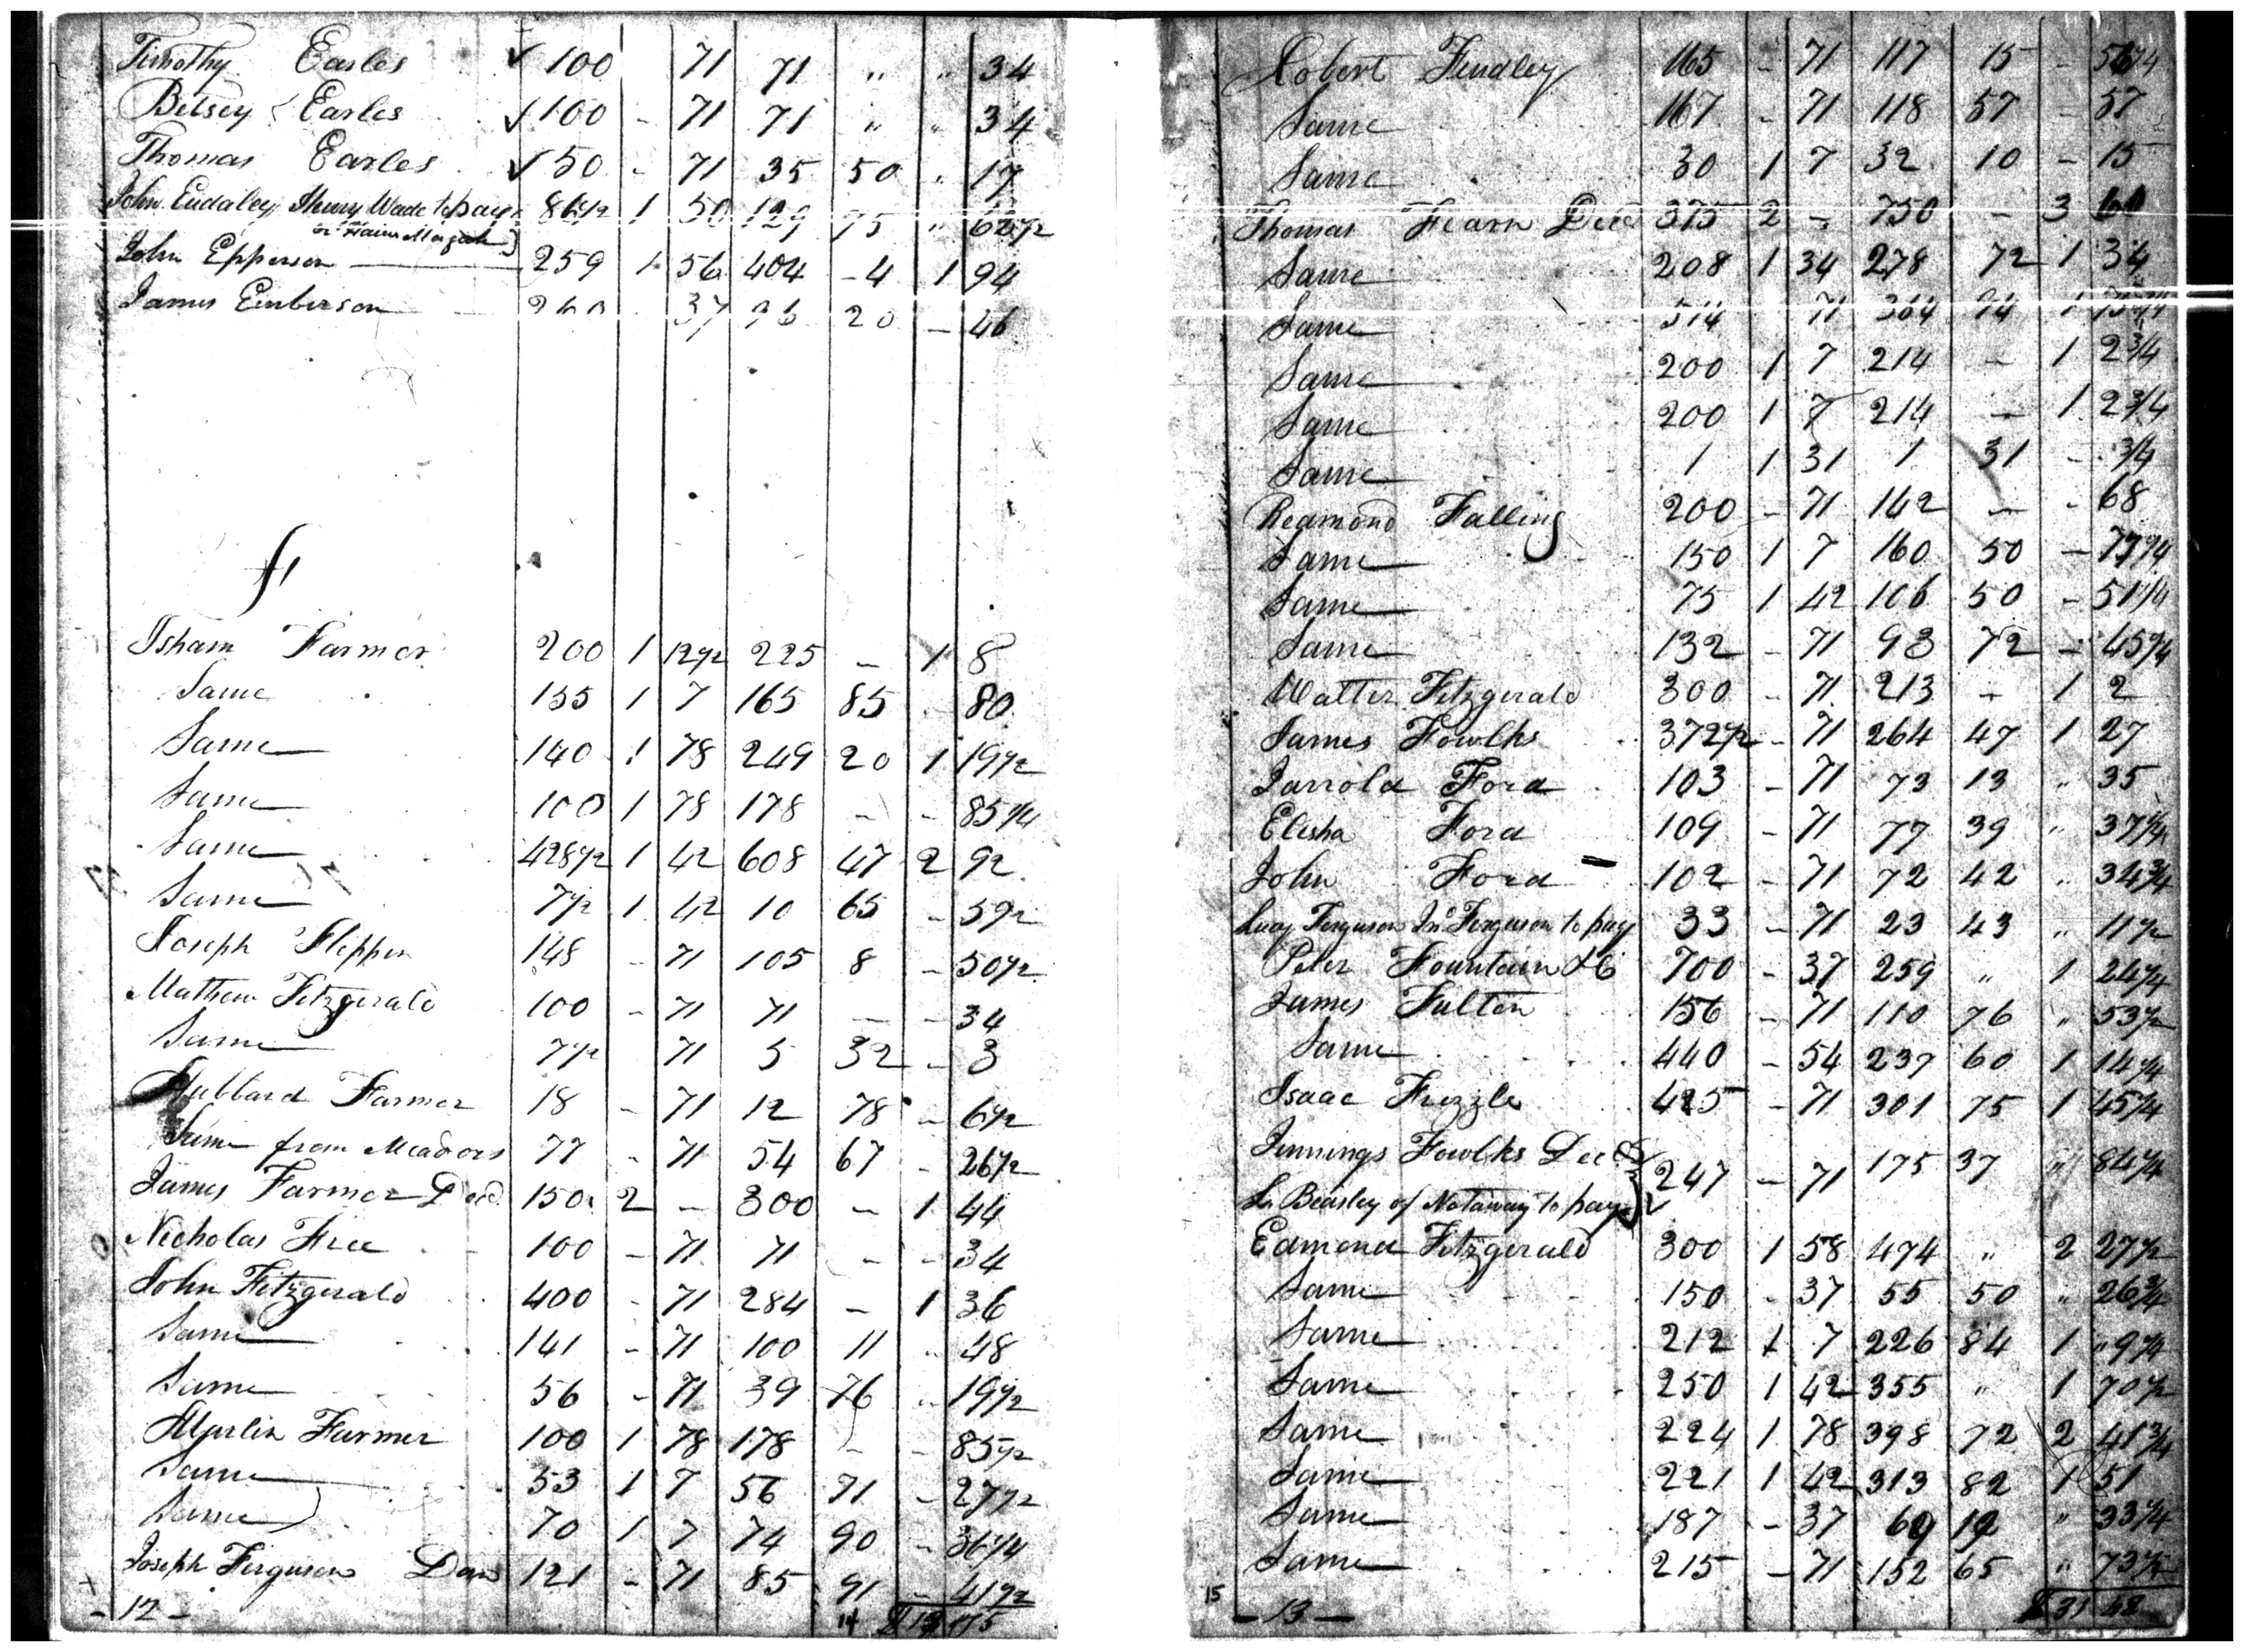 Timothy Earles ✓ 100 71 71 " " 34
Betsey Earles ✓ 100 - 71 71 " " 34
Thomas Earles ✓ 50 - 71 35 50 " 17
John Eudaley, Henry Wade to pay 86 1/2 1 50 129 75 " 62 1/2
or Hainr Morgan
John Epperson 259 1 56 404 - 4 1 94
James Emberson 260 37 96 20 - 46
F
Isham Farmer 200 1 12 1/2 225 - 1 8
Same 155 1 7 165 85 - 80
Same 140 1 78 249 20 1 19 1/2
Same 100 1 78 178 - - 85 1/4
Same 428 1/2 1 42 608 47 2 92
Same 7 1/2 1 42 10 65 - 5 1/2
Joseph Flippen 148 - 71 105 8 - 50 1/2
Mathew Fitzgerald 100 - 71 71 - - 34
Same 7 1/2 71 5 32 - 3
Hubbard Farmer 18 - 71 12 78 - 6 1/2
Same from Meadors 77 - 71 54 67 - 26 1/2
James Farmer Decd 150 2 - 300 - 1 44
Nicholas Free 100 - 71 71 - - 34
John Fitzgerald 400 - 71 284 - 1 36
Same 141 - 71 100 11 " 48
Same 56 - 71 39 76 " 19 1/2
Marlin Farmer 100 1 78 178 - - 85 1/2
Same 53 1 7 56 71 - 27 1/2
Same 70 1 7 74 90 - 36 1/4
Joseph Ferguson Dan 121 - 71 85 91 - 41 1/2
- 12 - 14
Robert Findley 165 - 71 117 15 -
Same 167 - 71 118 57 - 57
Same 30 1 7 32 10 - 15
Thomas Fearn Decd 375 2 - 750 - 3 60
Same 208 1 34 278 72 1 34
Same 514 71 364 94 1
Same 200 1 7 214 - 1 2 3/4
Same 200 1 7 214 - 1 2 3/4
Same 1 1 31 1 31 - 3/4
Reamond Falling 200 - 71 142 - - 68
Same 150 1 7 160 50 - 77 1/4
Same 75 1 42 106 50 - 51 1/4
Same 132 - 71 93 72 - 45 1/4
Walter Fitzgerald 300 - 71 213 - 1 2
James Fowlks 372 1/2 - 71 264 47 1 27
Jarrold Ford 103 - 71 73 13 " 35
Elisha Ford 109 - 71 77 39 " 37 1/4
John Ford 102 - 71 72 42 " 34 3/4
Lucy Ferguson Jno Ferguson to pay 33 - 71 23 43 " 11 1/2
Peter Fountain & Co 700 - 37 259 " 1 24 1/4
James Fulton 156 - 71 110 76 " 53 1/2
Same 440 - 54 237 60 1 14 1/4
Isaac Frizzle 425 - 71 301 75 1 45 1/4
Jennings Fowlks Decd
L. Beasley of Notaway to pay 247 - 71 175 37 " 84 1/4
Edmond Fitzgerald 300 1 58 474 " 2 27 1/2
Same 150 - 37 55 50 " 26 3/4
Same 212 1 7 226 84 1 " 9 1/4
Same 250 1 42 355 " 1 70 1/2
Same 224 1 78 398 72 2 41 3/4
Same 221 1 42 313 82 1 51
Same 187 - 37 69 19 " 33 1/4
Same 215 - 71 152 65 " 73 1/2
15 - 13 -